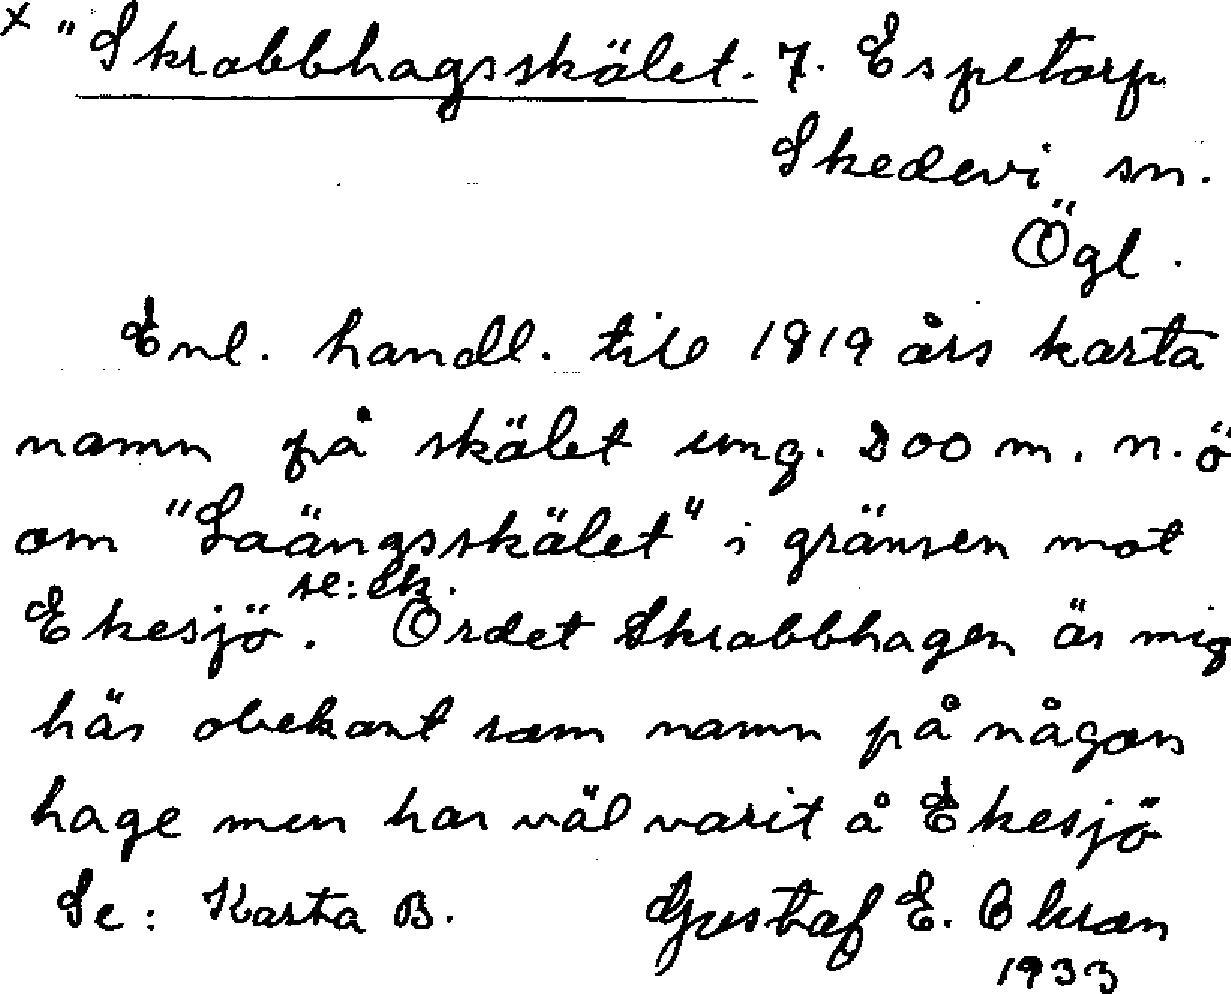 x "Skrabbhagsskälet. 7. Espetorp
Skedevi sn.
Ögl.
Enl. handl. till 1819 års karta
namn på skälet ung. 200 m. n.ö
om "Laängsskälet" i gränsen mot
se: ek.
Ekesjö. Ordet Skrabbhagen är mig
här obekant som namn på någon
hage men har väl varit å Ekesjö
Se: Karta B. Gustaf E.
1933